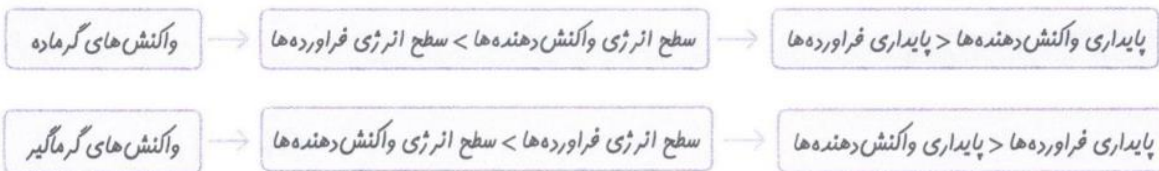 واکنش‌های گرماده → سطح انرژی واکنش‌دهنده‌ها > سطح انرژی فراورده‌ها → پایداری واکنش‌دهنده‌ها < پایداری فراورده‌ها
واکنش‌های گرماگیر → سطح انرژی فراورده‌ها > سطح انرژی واکنش‌دهنده‌ها → پایداری فراورده‌ها < پایداری واکنش‌دهنده‌ها